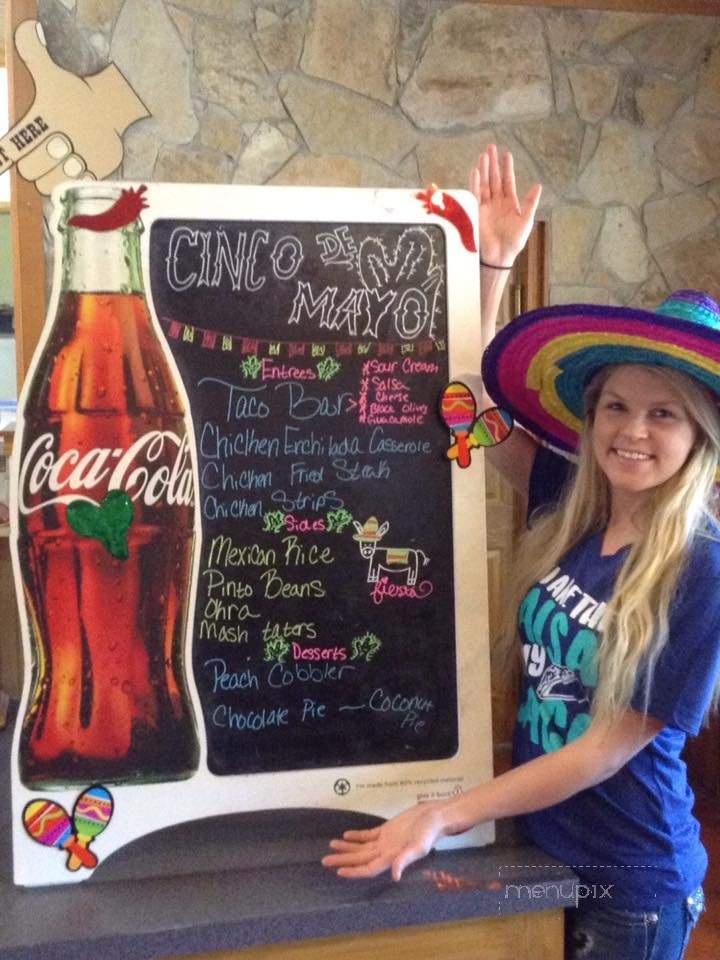 HERE
CINCO DE
MAYO!
Entrees
Taco Bar
*Sour Cream
*Salsa
*Cheese
*Black Olives
*Guacamole
Chicken Enchilada Casserole
Chicken Fried Steak
Chicken Strips
Sides
Mexican Rice
Pinto Beans
Okra
Mash taters
fiesta
Desserts
Peach Cobbler
Chocolate Pie — Coconut
Pie
Coca-Cola
I'm made from 80% recycled material
give it back
menupix